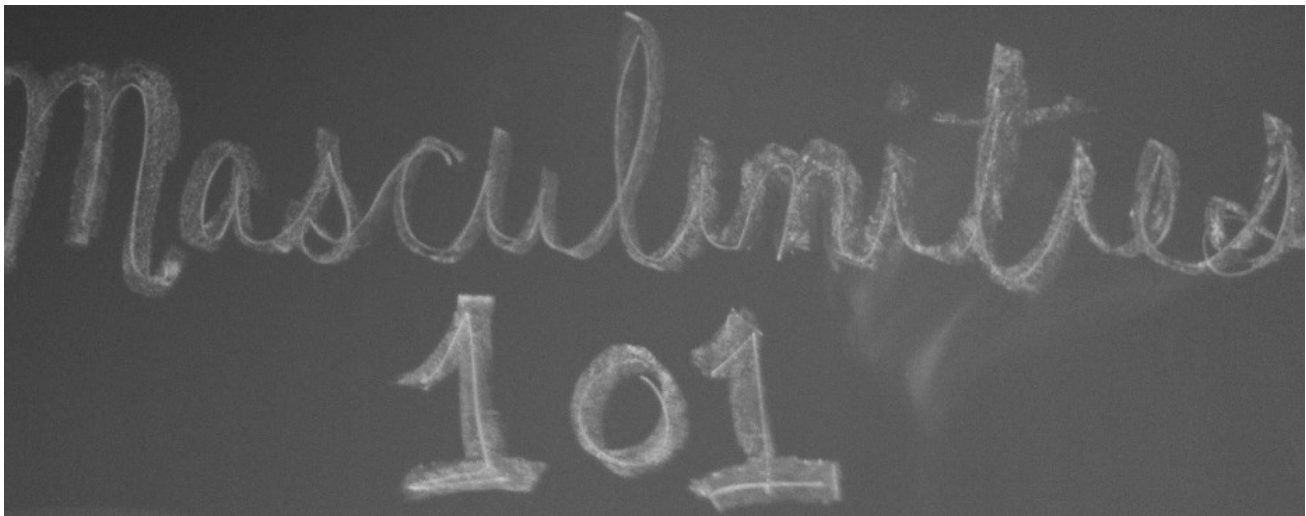 Masculinities
101